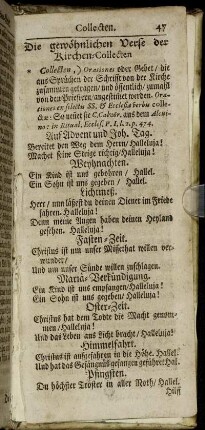 Collecten. 47
Die gewöhnlichen Verse der
Kirchen-Collecten
Collecten, Orationes oder Gebet / die
aus Sprüchen der Schrifft von der Kirche
zusammen getragen / und öffentlich / zumahl
von den Priestern / angestimmet werden. Ora-
tiones ex selectis SS. & Ecclesiæ verbis colle-
ctæ: So weiset sie
Auf Advent und Joh. Tag.
Bereitet den Weg dem Herrn / Halleluja!
Machet seine Steige richtig / Halleluja!
Weyhnachten.
Ein Kind ist uns gebohren / Hallel.
Ein Sohn ist uns gegeben / Hallel.
Lichtmeß.
Herr / nun lässest du deinen Diener im Friede
fahren. Halleluja!
Denn meine Augen haben deinen Heyland
gesehen. Halleluja!
Fasten-Zeit.
Christus ist um unser Missethat willen ver-
wundet /
Und um unser Sünde willen zuschlagen.
Mariä-Verkündigung.
Ein Kind ist uns empfangen / Halleluja!
Ein Sohn ist uns gegeben / Halleluja!
Oster-Zeit.
Christus hat dem Todte die Macht genom-
men / Halleluja!
Und das Leben ans Licht bracht / Halleluja!
Himmelfahrt.
Christus ist aufgefahren in die Höhe. Hallel.
Und hat das Gefängniß gefangen geführet Hal.
Pfingsten.
Du höchster Tröster in aller Noth / Hallel.
Hilff